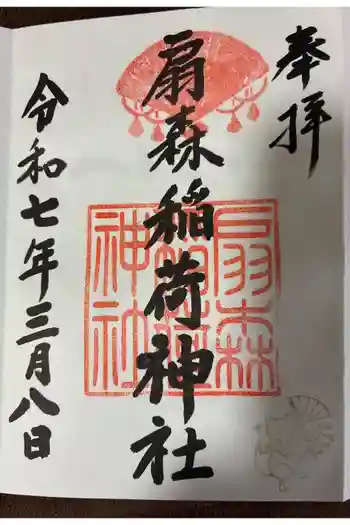 奉拝
扇森稲荷神社
令和七年三月八日
扇森
稲荷
神社